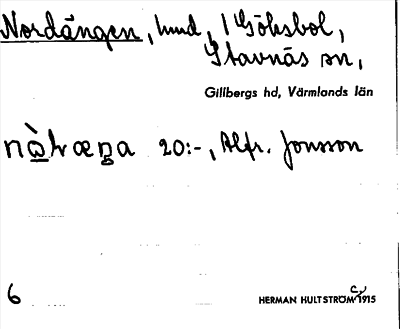 Nordängen, hmd, 1 Göksbol,
Stavnäs sn,
Gillbergs hd, Värmlands län
20:-, Alfr. Jonsson
6
HERMAN HULTSTRÖM 1915